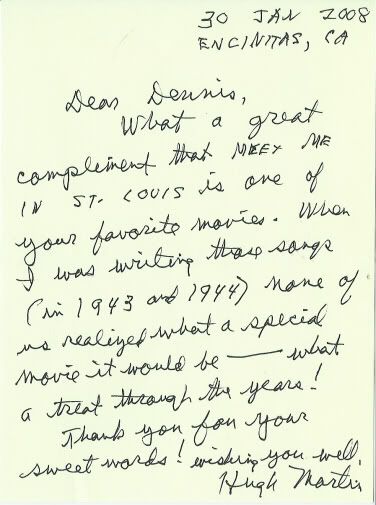 30 JAN 2008
ENCINITAS, CA
Dear Dennis,
What a great
compliment that MEET ME
IN ST. LOUIS is one of
your favorite movies. When
I was writing those songs
(in 1943 and 1944) none of
us realized what a special
movie it would be — what
a treat through the years!
Thank you for your
sweet words! wishing you well,
Hugh Martin